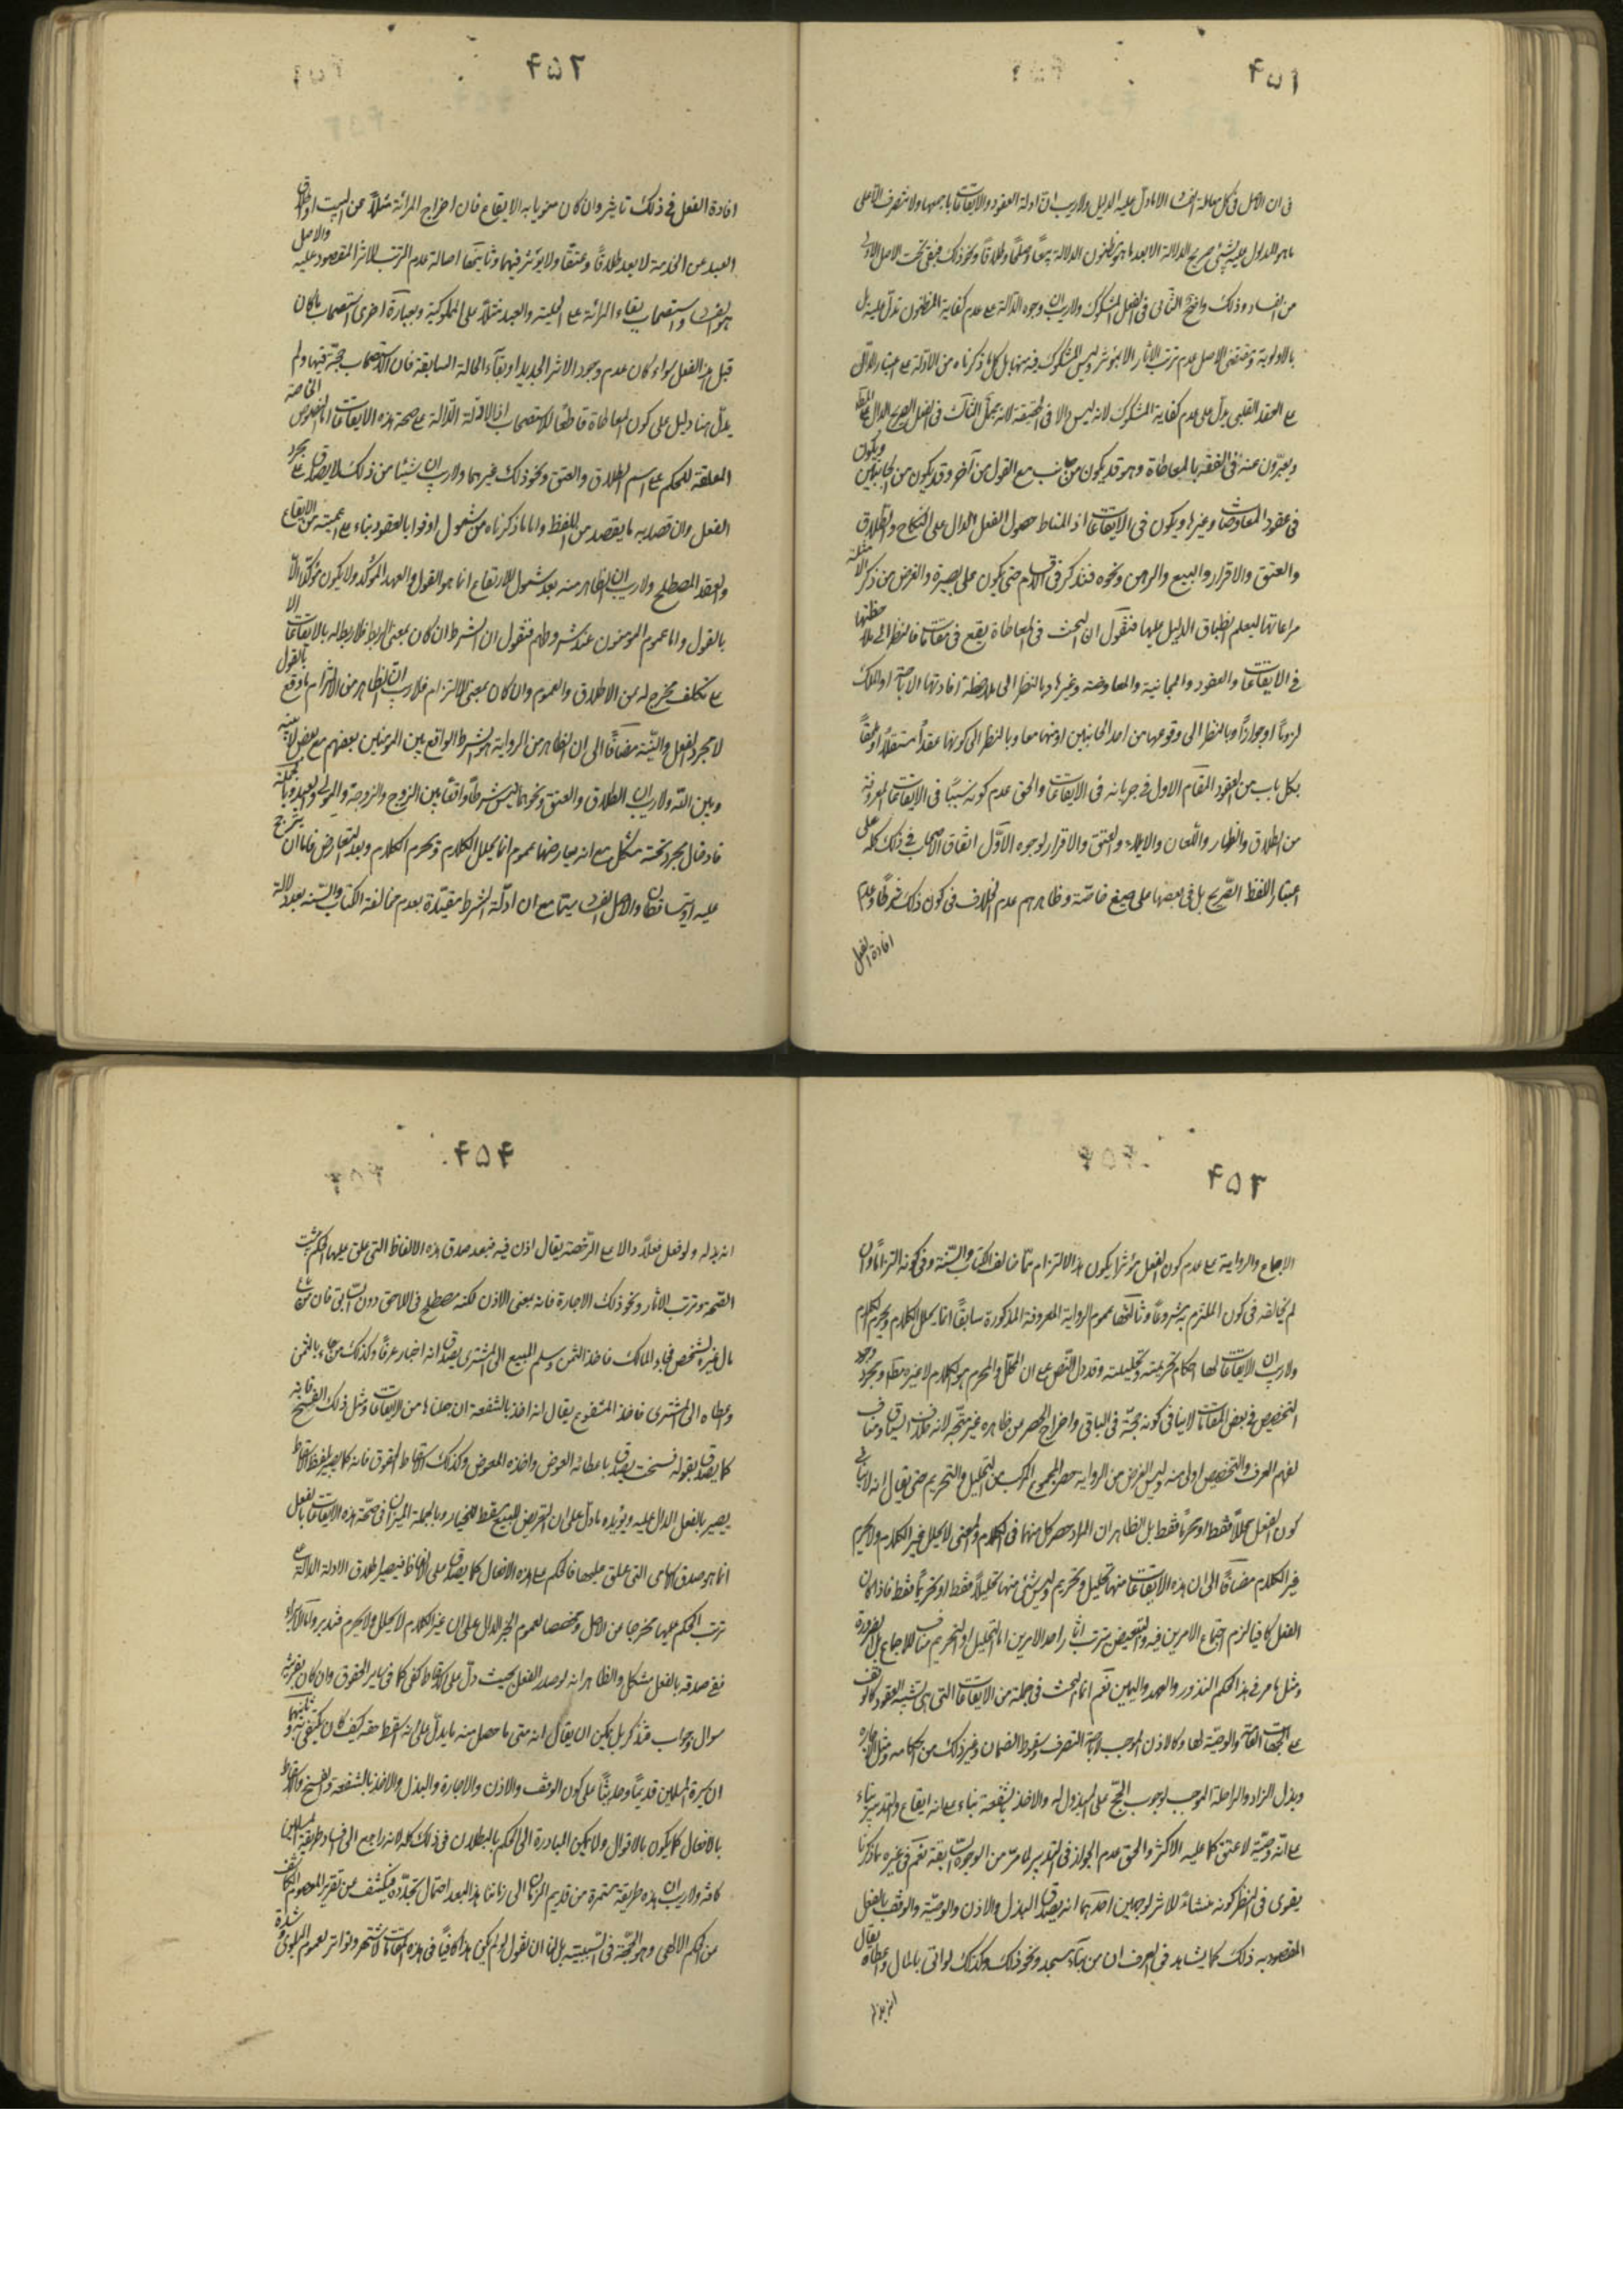 ۴۵۱
فى ان الاصل فى كل معاملة الفساد الا ما دل عليه الدليل ولا ريب ان ادلة العقود والايقاعات باجمعها ولا تنصرف الا على
ما هو المدلول عليه بشئ صريح الدلالة الا بعد ما هو مظنون الدلالة بيعًا وصلحًا وطلاقًا ونحو ذلك فبقى تحت الاصل الاولى
من الفساد وذلك واضح الثانى فى الفعل المشكوك ولا ريب ان وجوه الدالة على عدم كفاية المظنون تدل عليه بل
بالاولوية وتقتضى الاصل عدم ترتب الاثار الا بمؤثر وليس المشكوك فيه منها بل كل ما ذكرناه من الادلة على اعتبار الدال
على العقد القلبى يدل على عدم كفاية المشكوك لانه ليس دالا فى الحقيقة لانه مجمل الثالث فى الفعل الصريح الدال على
ويعبرون عنه فى الفقه بالمعاطاة وهو قد يكون من جانب مع القول من آخر وقد يكون من الجانبين ويكون
فى عقود المعاوضات وغيرها ويكون فى الايقاعات اذ المناط حصول الفعل الدال على النكاح والطلاق
والعتق والاقرار والبيع والرهن ونحوه فنذكر فى الاقسام حتى يكون على بصيرة والغرض من ذكر الامثلة
مراعاتها ليعلم انطباق الدليل عليها فنقول ان البحث فى المعاطاة يقع فى مقامات فالنظر الى ملاحظتها
فى الايقاعات والعقود والمجانية والمعاوضة وغيرها وبالنظر الى ملاحظة افادتها الاباحة او الملك
لزومًا او جوازًا وبالنظر الى وقوعها من احد الجانبين او منهما معا وبالنظر الى كونها عقدًا مستقلًا او ملحقًا
بكل باب من العقود المقام الاول فى جريانه فى الايقاعات والحق عدم كونه سببًا فى الايقاعات المعروفة
من الطلاق والظهار واللعان والايلاء والعتق والاقرار لوجوه الاول اتفاق الاصحاب فى ذلك كله على
اعتبار اللفظ الصريح بل فى بعضها على صيغ خاصة وظاهرهم عدم الخلاف فى كون ذلك شرطًا وعدم
افادة الفعل
۴۵۲
افادة الفعل فى ذلك تاثير وان كان منويا به الايقاع فان اخراج المرائة مثلًا عن البيت او اطلاق
العبد عن الخدمة لا يعد طلاقًا وعتقًا ولا يؤثر فيهما وثانيتها اصالة عدم الترتب للاثر المقصود عليه والاصل
هو الفساد واستصحاب بقاء المرائة على الحلية والعبد مثلًا على المملوكية وبعبارة اخرى استصحاب ما كان
قبل هذا الفعل سواء كان عدم وجود الاثر الجديد او بقاء الحالة السابقة فان الاستصحاب حجة فيها ولم
يدل هنا دليل على كون المعاطاة قاطعًا للاستصحاب اذ الادلة الدالة على صحة هذه الايقاعات اما النصوص الخاصة
المعلقة للحكم على اسم الطلاق والعتق ونحو ذلك غيرهما ولا ريب ان شيئا من ذلك لا يصدق على مجرد
الفعل وان قصد به ما يقصد من اللفظ واما ما ذكرناه من شمول اوفوا بالعقود بناء على اعميته من الايقاع
والعقد المصطلح ولا ريب ان الظاهر منه بعد شمول للايقاع انما هو القول والعهد المؤكد ولا يكون مؤكدًا الا
بالقول واما عموم المومنون عند شروطهم فنقول ان الشرط ان كان بمعنى الربط فلا ربط له بالايقاعات الا
على تكلف مخرج له من الاطلاق والعموم وان كان بمعنى الالتزام فلا ريب ان الظاهر من الالتزام ما وقع بالقول
لا مجرد الفعل والنية مضافًا الى ان الظاهر من الرواية هو الشرط الواقع بين المومنين بعضهم مع بعض لا بينه
وبين الله ولا ريب ان الطلاق والعتق ونحوهما ليس شرطًا واقعًا بين الزوج والزوجة والمولى والعبد وبالجملة
فادخال مجرد تحته مشكل مع انه معارضها عموم انما يحلل الكلام ويحرم الكلام وبعد التعارض فاما ان يرجح
عليه او يتساقطان والاصل الفساد سيما مع ان ادلة الشرط مقيدة بعدم مخالفة الكتاب والسنة بعد دلالة
۴۵۳
الاجماع والرواية على عدم كون الفعل مؤثرا يكون هذا الالتزام مما خالف الكتاب والسنة وفى كونه التزامًا وان
لم يخالفه فى كون الملتزم به شروعًا وثالثها عموم الرواية المعروفة المذكورة سابقًا انما يحلل الكلام ويحرم الكلام
ولا ريب ان الايقاعات لها احكام تحريمية وتحليلية وقد دل النص على ان المحلل والمحرم هو الكلام لا غيره مطلقا ومجرد وجود
التخصيص فى بعض المقامات لا ينافى كونه حجة فى الباقى واخراج الحصر من ظاهره غير متجه لانه خلاف السياق ومناف
لفهم العرف والتخصيص اولى منه وليس الغرض من الرواية حصر المجموع المركب من التحليل والتحريم حتى يقال انه لا ينافى
كون الفعل محللًا فقط او محرمًا فقط بل الظاهر ان المراد حصر كل منهما فى الكلام والمعنى لا يحلل غير الكلام ولا يحرم
غير الكلام مضافًا الى ان هذه الايقاعات منها تحليل وتحريم وليس شئ منها تحليلًا فقط او تحريمًا فقط فاذا كان
الفعل كافيا لزم اجتماع الامرين فيه والتبعيض بترتب اثار احد الامرين اما التحليل او التحريم مناف للاجماع بل الضرورة
ومثل ما مر فى هذا الحكم النذور والعهد واليمين نعم انما البحث فى جملة من الايقاعات التى هى شبيه العقود كالوقف
على الجهات العامة والوصية لها وكالاذن الموجب لاباحة التصرف وسقوط الضمان وغير ذلك من احكامه ومثل الاجازة
وبذل الزاد والراحلة الموجب لوجوب الحج على المبذول له والاخذ بالشفعة بناء على انه ايقاع والتدبير بناء
على انه وصية لا عتق كما عليه الاكثر والحق عدم الجواز فى التدبير لما مر من الوجوه السابقة نعم فى غيره ما ذكرنا
يقوى فى النظر كونه منشاءً للاثر لوجهين احدهما انه يصدق البذل والاذن والوصية والوقف بالفعل
المقصود به ذلك كما يشاهد فى العرف ان من بناء مسجد ونحو ذلك وكذلك لو اتى بالمال واعطاه يقال
انه بذل له
۴۵۴
انه بذل له ولو فعل فعلًا دالا على الرخصة يقال اذن فيه فبعد صدق هذه الالفاظ التى علق عليها الحكم يثبت
الصحة وترتب الاثار ونحو ذلك الاجازة فانه بمعنى الاذن لكنه مصطلح فى اللاحق دون السابق فان من باع
مال غيره لشخص فجاء المالك فاخذ الثمن وسلم المبيع الى المشترى يصدق انه اجاز عرفًا وكذلك من جاء بالثمن
واعطاه الى المشترى فاخذ المشفوع يقال انه اخذ بالشفعة ان جعلناها من الايقاعات ومثل ذلك الفسخ فانه
كما يصدق بقوله فسخت يصدق باعطائه العوض واخذه المعوض وكذلك اسقاط الحقوق فانه كما يصير بلفظ الاسقاط
يصير بالفعل الدال عليه ويؤيده ما دل على ان التعريض للبيع يسقط الخيار وبالجملة الميزان فى صحة هذه الايقاعات بالفعل
انما هو صدق الاسامى التى علق عليها الحكم على هذه الافعال كما يصدق على الالفاظ فيصير اطلاق الادلة الدالة على
ترتب الحكم عليها مخرجا عن الاصل ومخصصا لعموم الخبر الدال على ان غير الكلام لا يحلل ولا يحرم فتدبر واما الابراء
ففى صدقه بالفعل مشكل والظاهر انه لو صدر الفعل بحيث دل على الاسقاط كفى كما فى ساير الحقوق وان كان بقرينة
سوال وجواب فتذكر بل يمكن ان يقال انه متى ما حصل منه ما يدل على انه اسقط حقه كيف كان يكتفى به وثانيهما
ان سيرة المسلمين قديمًا وحديثًا على كون الوقف والاذن والاجازة والبذل والاخذ بالشفعة والفسخ والاسقاط
بالافعال كما يكون بالاقوال ولا يمكن المبادرة الى الحكم بالبطلان فى ذلك كله لانه راجع الى فساد طريقة المسلمين
كافة ولا ريب ان هذه طريقة مستمرة من قديم الزمان الى زماننا هذا لبعد احتمال تجدده فيكشف عن تقرير المعصوم الكاشف
من الحكم الالهى وهو الحجة فى السببية بل لنا ان نقول لو لم يكن هذا كافيًا فى هذه المقامات لاشتهر وتواتر لعموم البلوى وشدة